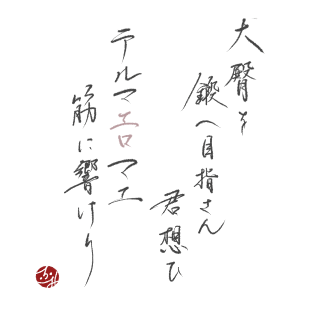 大臀を
鍛へ目指さん
君想ひ
テルマエロマエ
筋に響けり